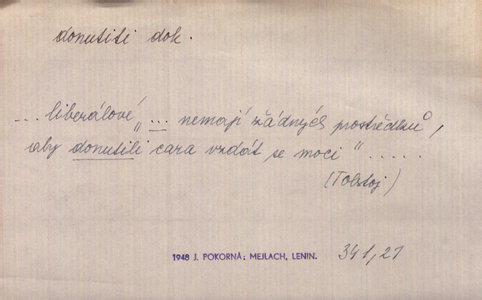 donutiti dok.
... liberálové „ ... nemají žádných prostředků,
aby donutili cara vzdát se moci “ .....
(Tolstoj)
1948 J. POKORNÁ: MEJLACH, LENIN. 341,21